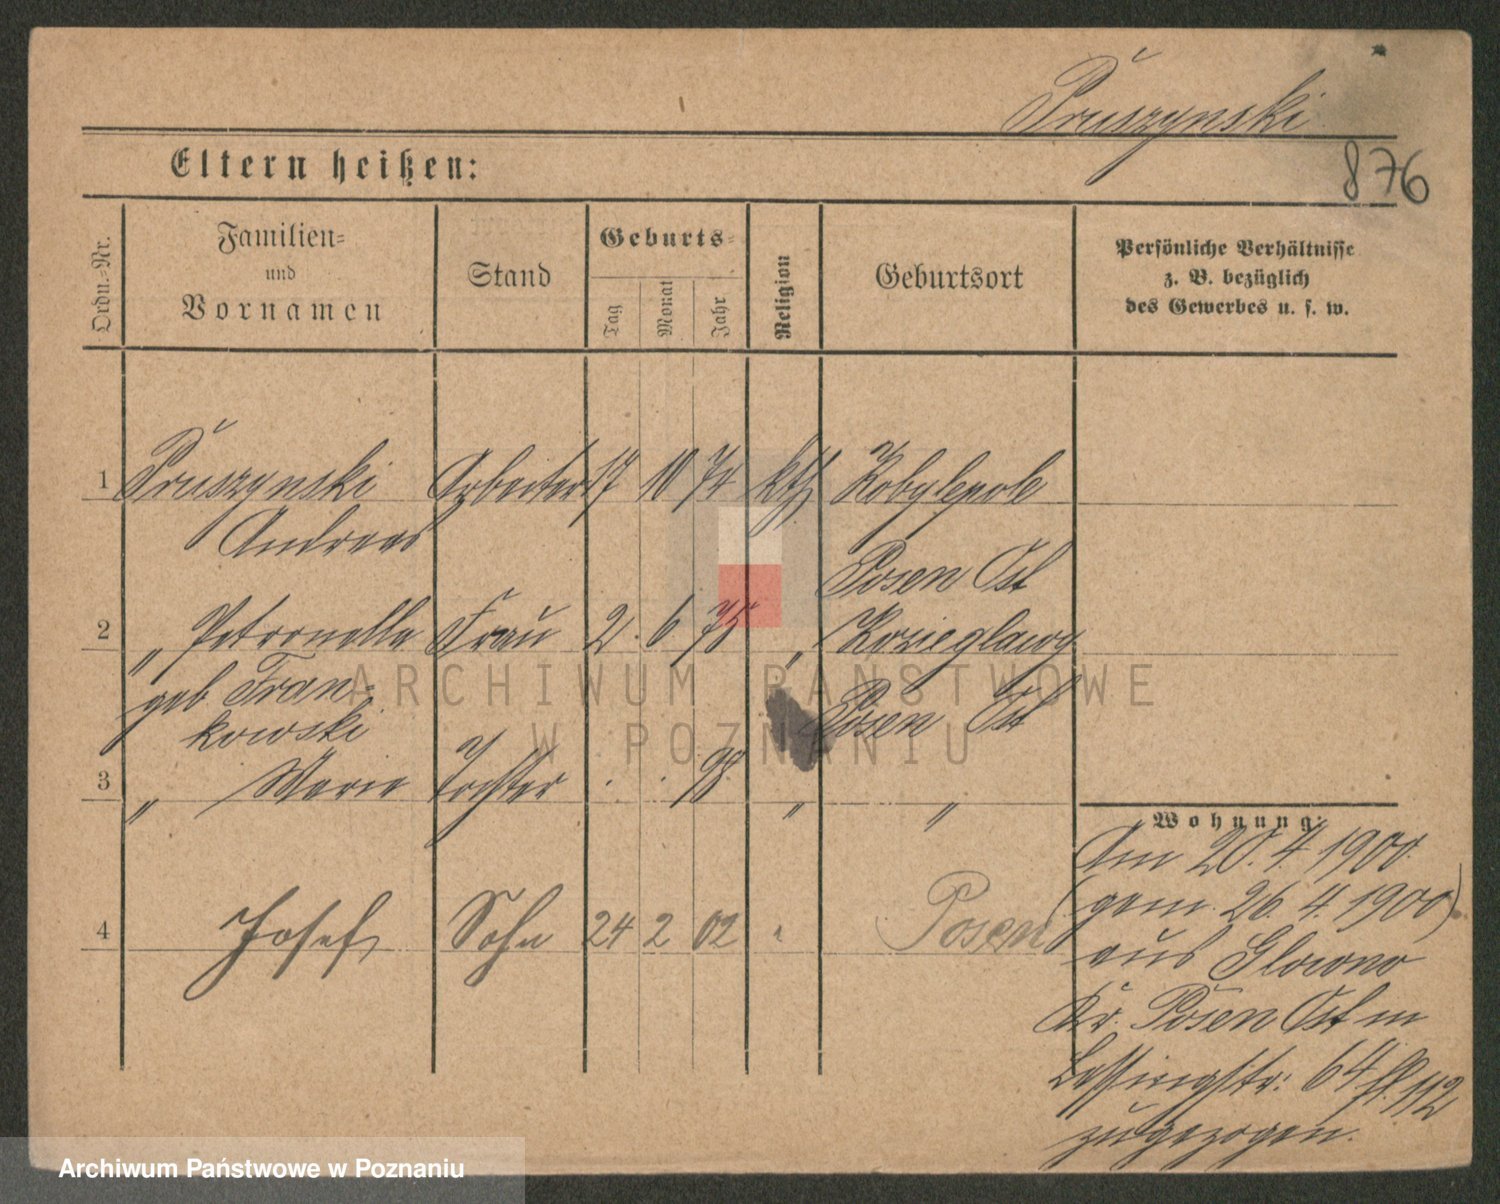 Pruszynski
Eltern heißen:
876
Ordn.-Nr.
Familien-
und
Vornamen
Stand
Geburts-
Tag
Monat
Jahr
Religion
Geburtsort
Persönliche Verhältnisse
z. B. bezüglich
des Gewerbes u. s. w.
1 Pruszynski Arbeiter 17 10 74 kth Kobylepole
Andreas
Posen Ost
2 „ Petronella Frau 2. 6. 75 „
geb Fran-
kowski
Posen Ost
3 „ Marie Tochter . . 98 „ „
4 Josef Sohn 24 2 02 Posen
Wohnung:
Am 20. 4. 1900
(gem. 26. 4. 1900)
aus Glowno
Kr. Posen Ost in
Lessingstr: 64
zugezogen.
ARCHIWUM PAŃSTWOWE
W POZNANIU
Archiwum Państwowe w Poznaniu